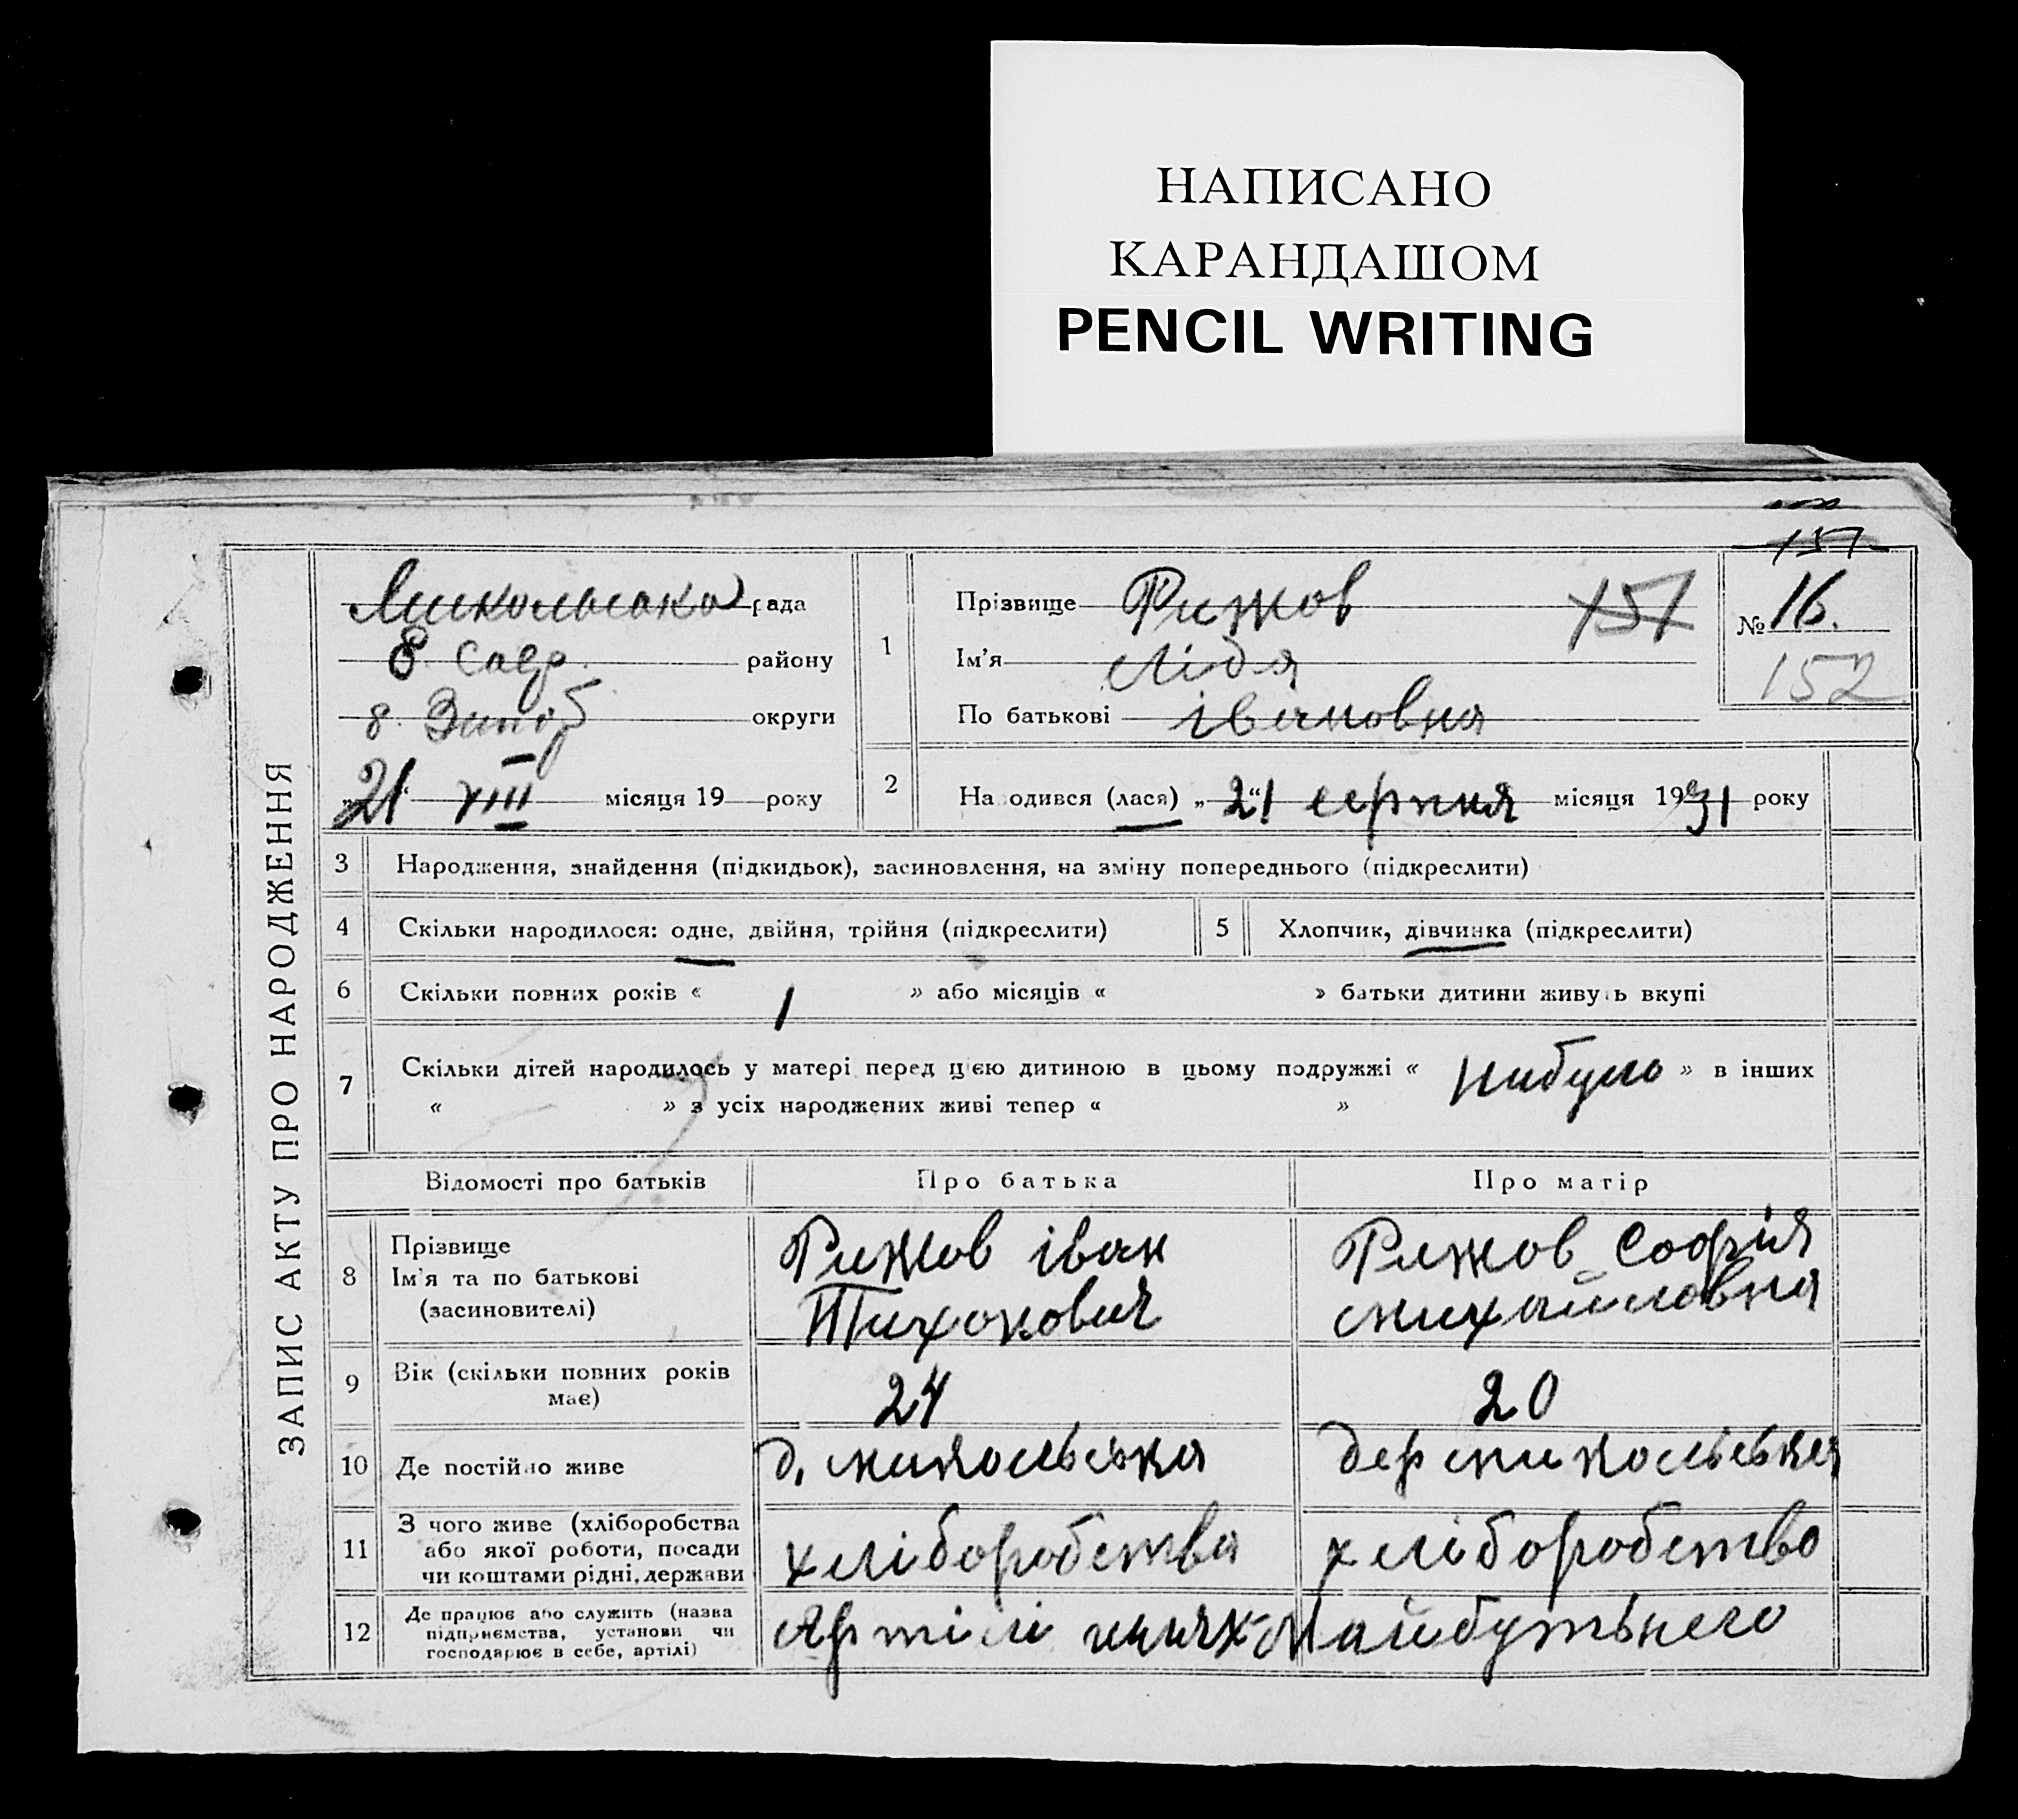 НАПИСАНО
КАРАНДАШОМ
PENCIL WRITING
157
ЗАПИС АКТУ ПРО НАРОДЖЕННЯ
Микольська рада
району
8. Запор округи
„21“ VIII місяця 19 року
1
Прізвище Рижов 151
Ім'я Лідя
По батькові івановна
№ 16.
152
2 Народився (лася) „21“ серпня місяця 1931 року
3 Народження, знайдення (підкидьок), засиновлення, на зміну попереднього (підкреслити)
4 Скільки народилося: одне, двійня, трійня (підкреслити) 5 Хлопчик, дівчинка (підкреслити)
6 Скільки повних років « 1 » або місяців « » батьки дитини живуть вкупі
7 Скільки дітей народилось у матері перед цією дитиною в цьому подружжі « нибуло » в інших
« » з усіх народжених живі тепер « »
Відомості про батьків Про батька Про матір
8 Прізвище
Ім'я та по батькові
(засиновителі)
Рижов іван
Тихонович
Рижов Софія
михайловна
9 Вік (скільки повних років
має)
24 20
10 Де постійно живе д. микольська дер микольськя
11 З чого живе (хліборобства
або якої роботи, посади
чи коштами рідні, держави
хліборобства хліборобство
12 Де працює або служить (назва
підприємства, установи чи
господарює в себе, артілі)
Артілі шлях Майбутьнего